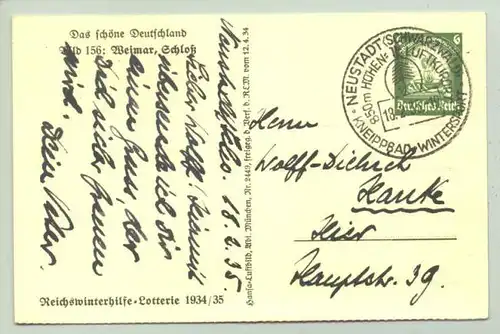 Das schöne Deutschland
Bild 156: Weimar, Schloß
Neustadt/Schw. 18.2.35
Lieber Wolff! Hiermit
übersende ich Dir
einen Gruß, der
Dich sicher freuen
wird. Dein Vater.
Reichswinterhilfe-Lotterie 1934/35
Hansa-Luftbild, Abt. München, Nr. 2449, freigeg. d. Verf. d. RLM. vom 12.4.34
NEUSTADT (SCHWARZWALD)
850m HÖHEN-LUFTKURORT
18.2
KNEIPPBAD - WINTERSPORT
6
Deutsches Reich
Herrn
Wolff-Dietrich
Hanke
Hier
Hauptstr. 39.